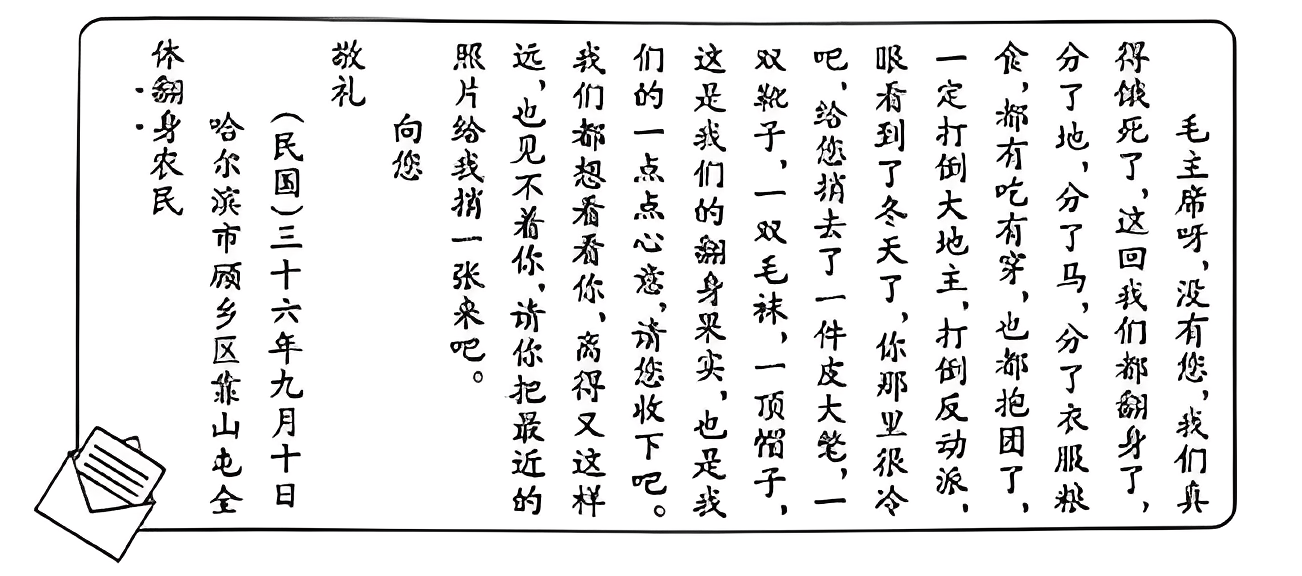 毛主席呀，没有您，我们真
得饿死了，这回我们都翻身了，
分了地，分了马，分了衣服粮
食，都有吃有穿，也都抱团了，
一定打倒大地主，打倒反动派，
眼看到了冬天了，你那里很冷
吧，给您捎去了一件皮大笔，一
双靴子，一双毛袜，一顶帽子，
这是我们的翻身果实，也是我
们的一点点心意，请您收下吧。
我们都想看看你，离得又这样
远，也见不着你，请你把最近的
照片给我捎一张来吧。
向您
敬礼
（民国）三十六年九月十日
哈尔滨市顾乡区靠山屯全
体翻身农民